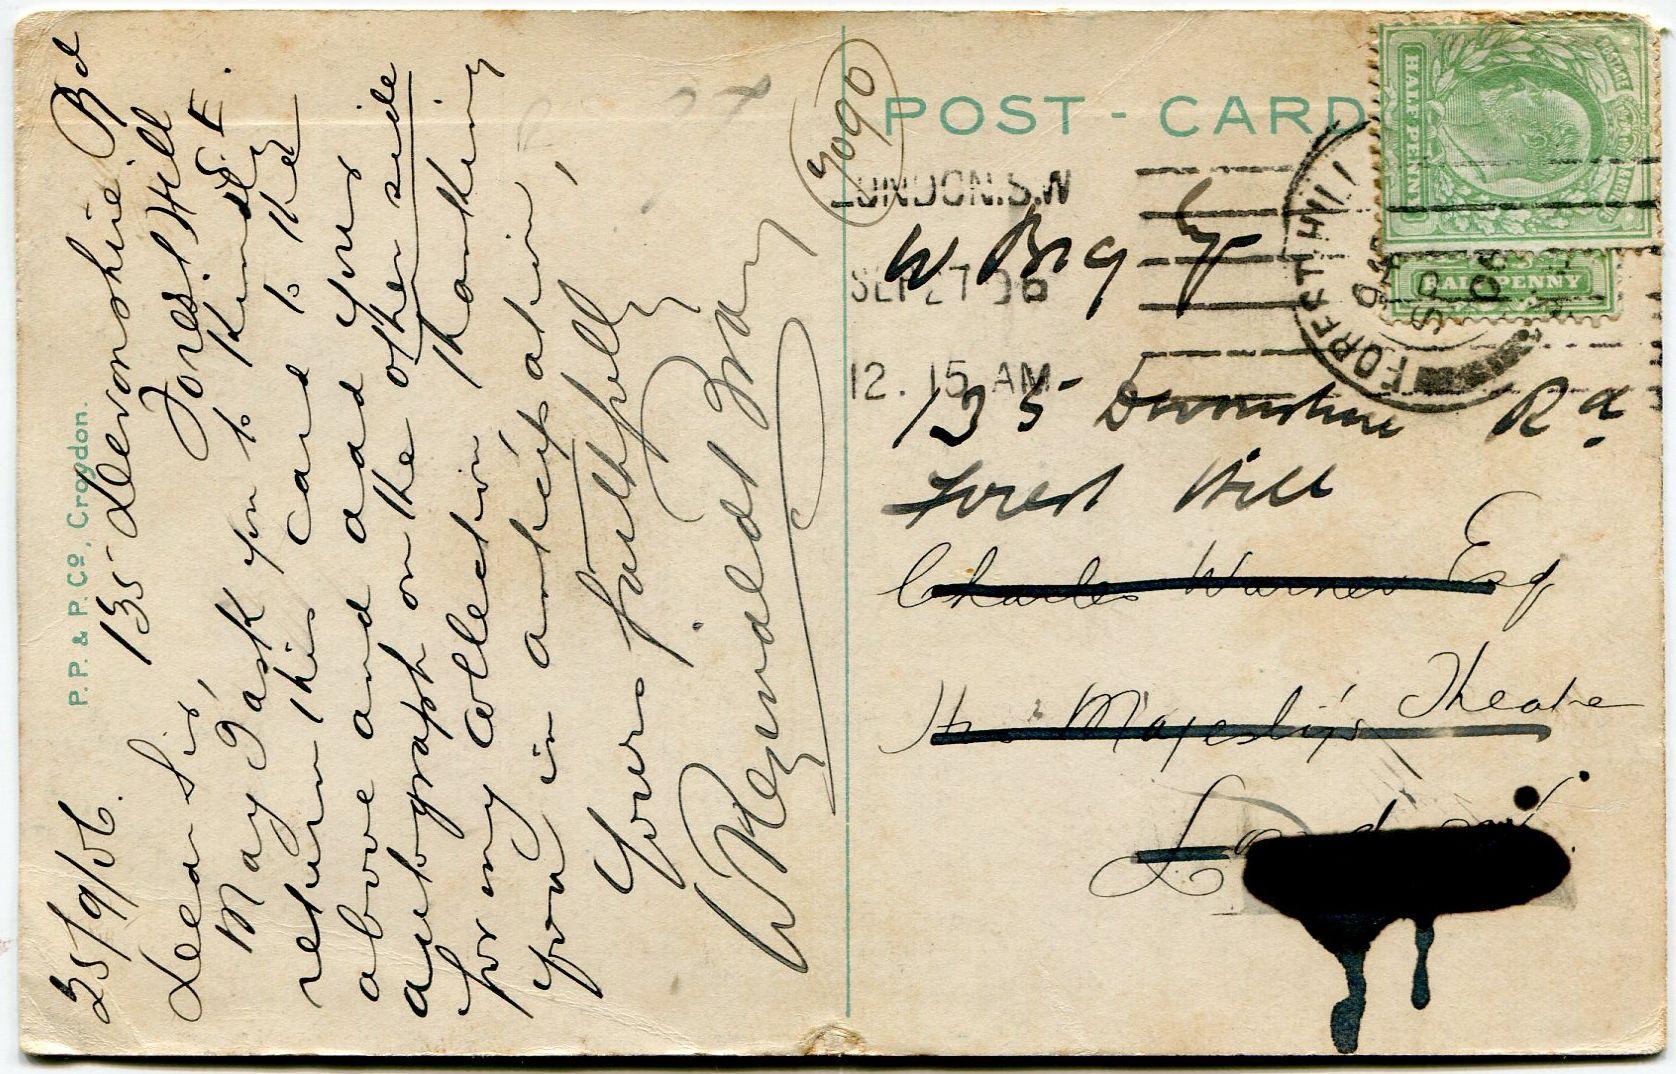 25/9/06. 135 Devonshire Rd
Forest Hill
S.E.
Dear Sir,
May I ask you to kindly
return this card to the
above and add your
autograph on the other side
for my collection thanking
you in anticipation,
Yours faithfully
W Reginald Bray
P.P. & P. Co, Croydon.
POST - CARD
LONDON.S.W
SEP 27 06
12.15 AM
FOREST HILL
HALF PENNY
HALF PENNY
POSTAGE
W Bray Esq
135 Devonshire Rd
Forest Hill
Charles Warner Esq
His Majesty's Theatre
London